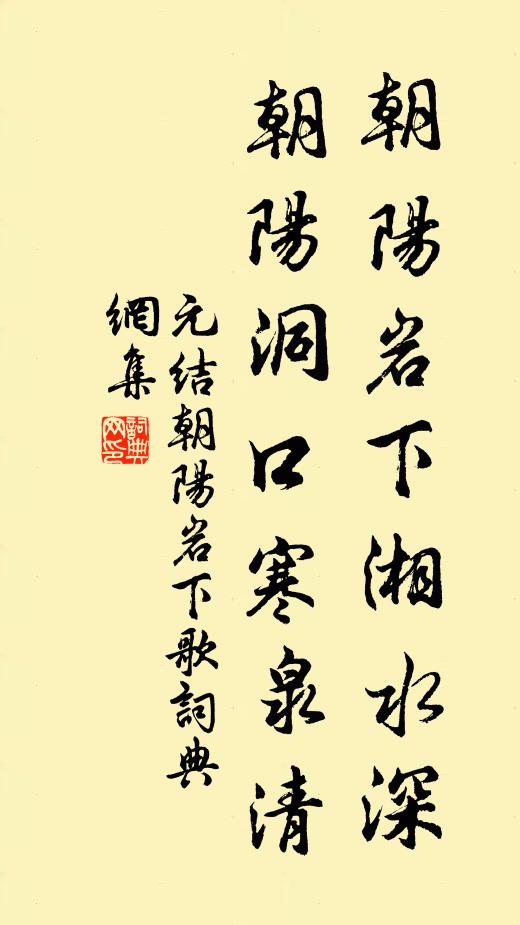 朝陽岩下湘水深
朝陽洞口寒泉清
元结朝陽岩下歌詞典
網集
詞典
网印